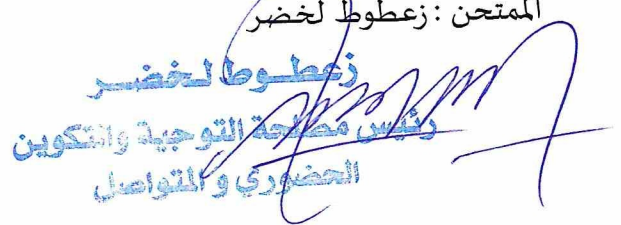 الممتحن : زعطوط لخضر
زعطوط لخضر
رئيس مصلحة التوجية والتكوين
الحضوري و المتواصل